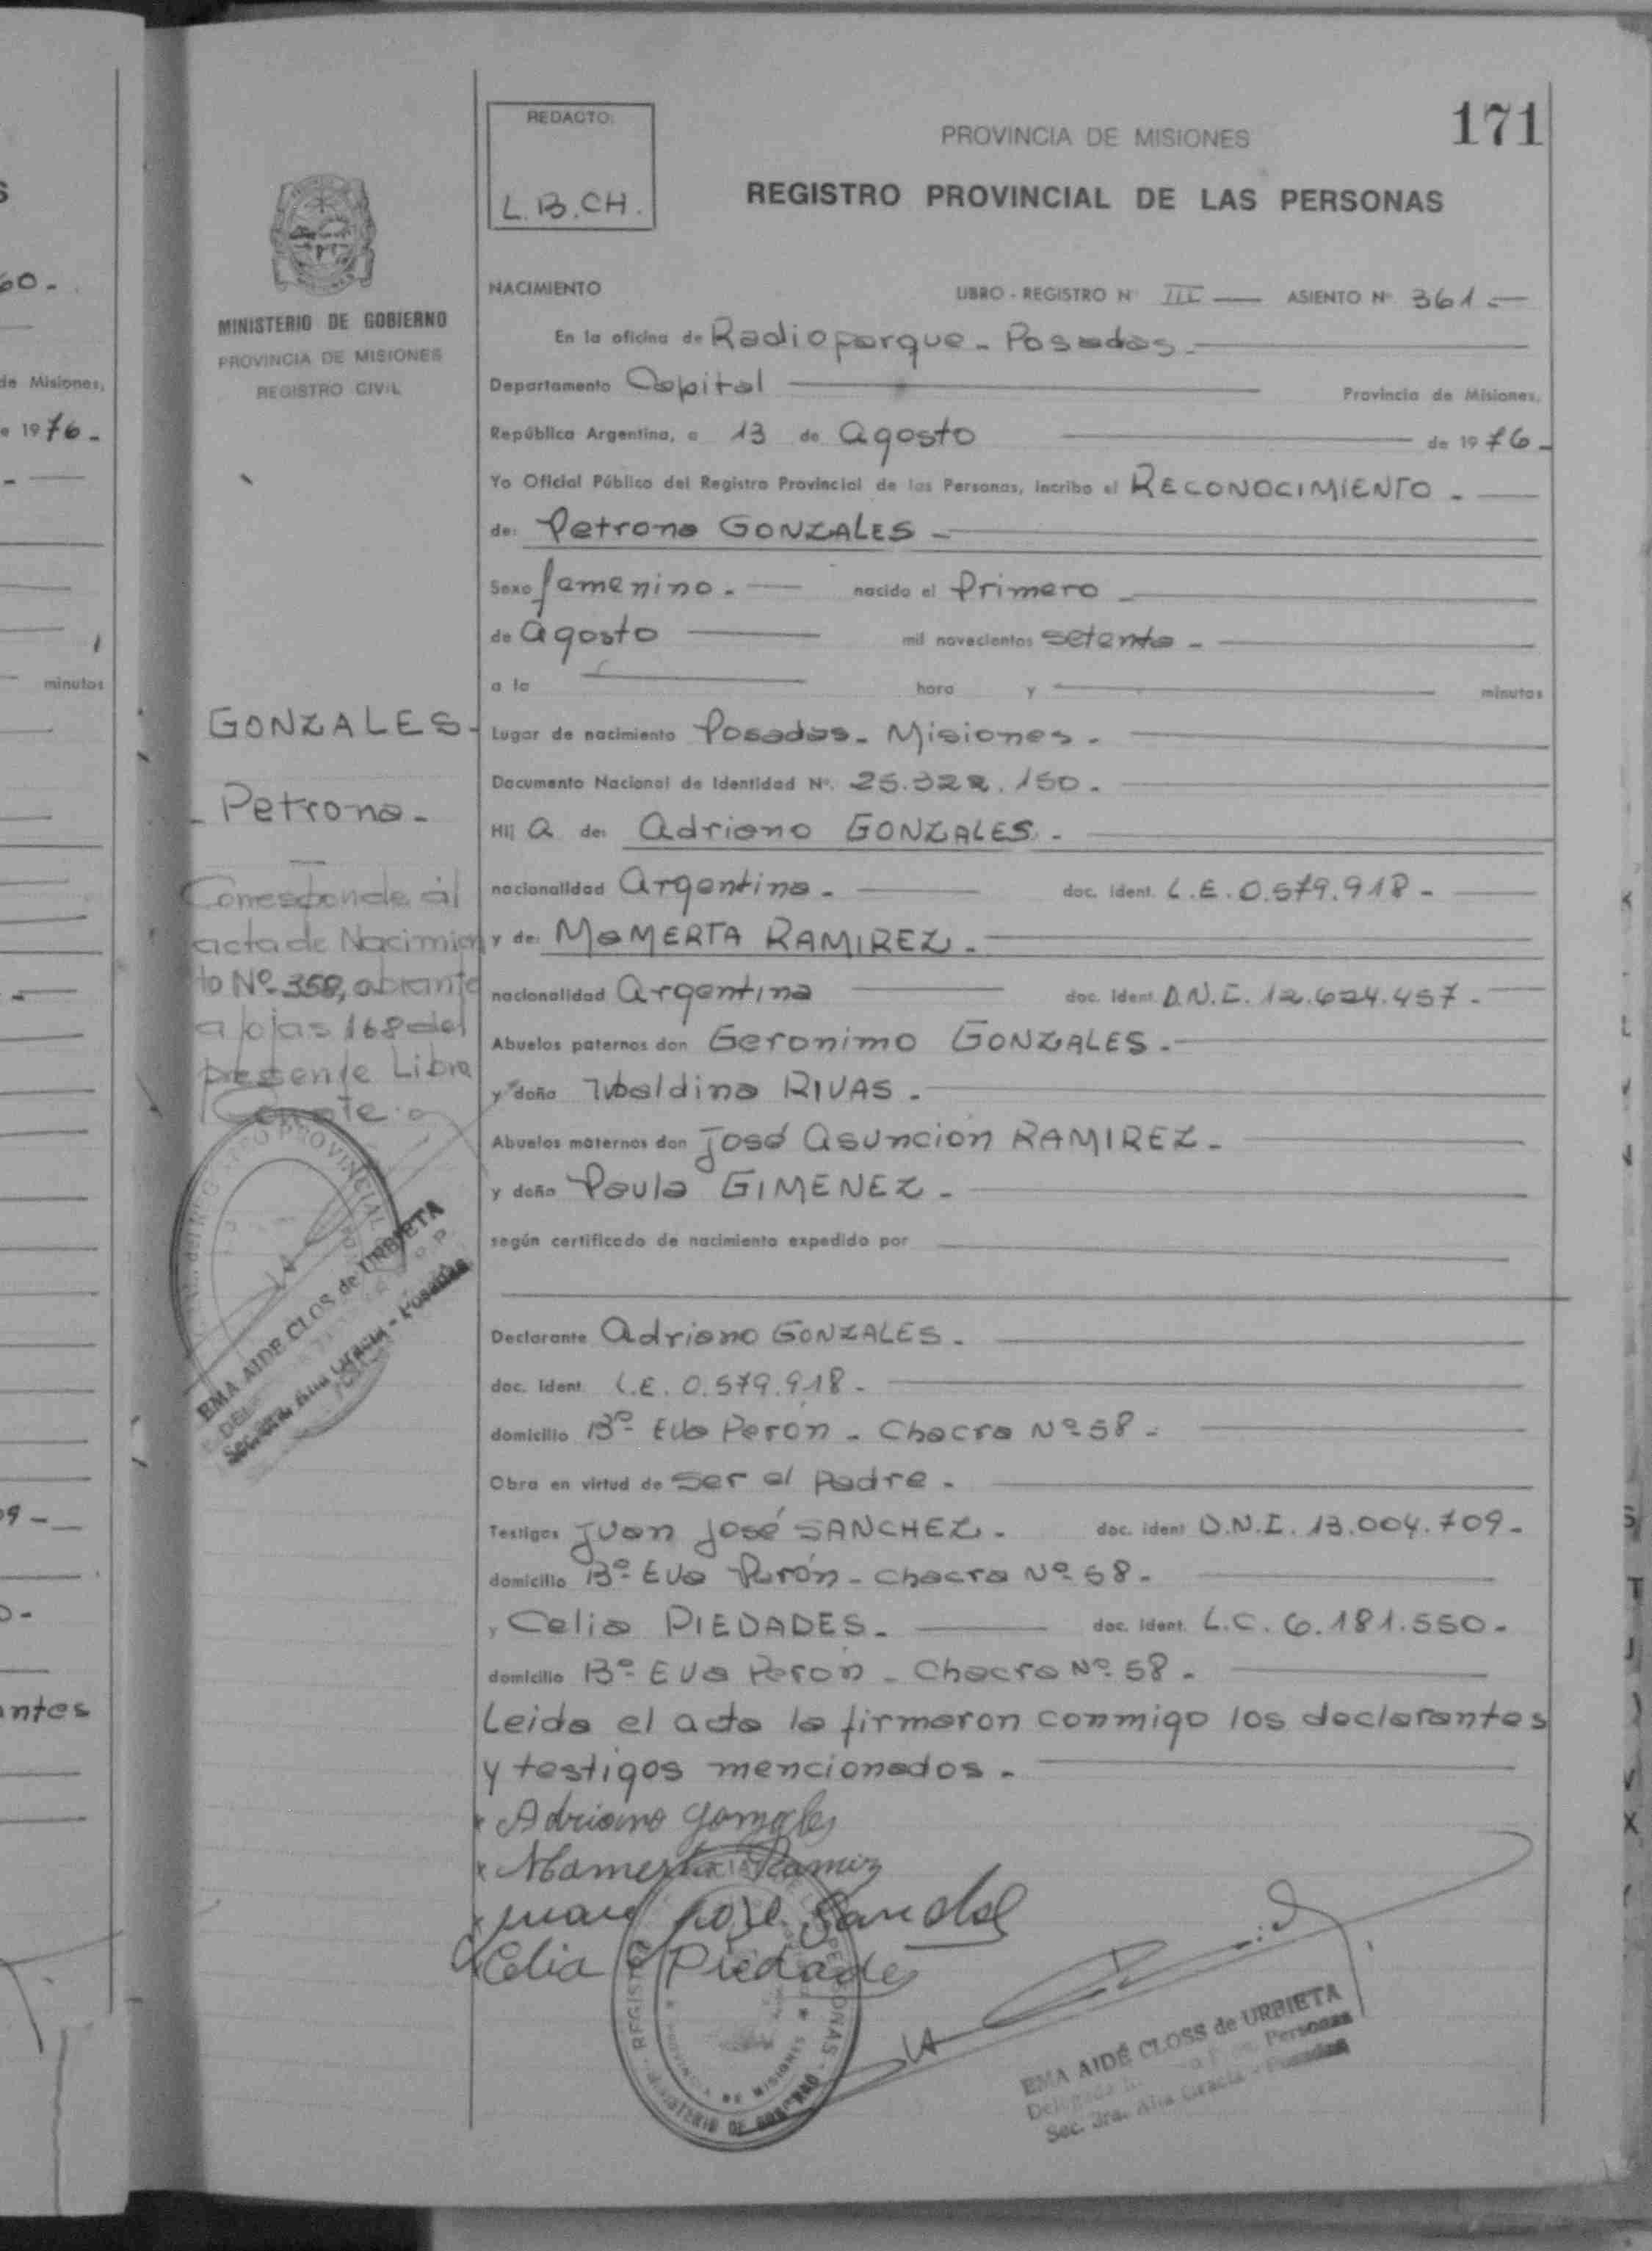 171
REDACTO:
L.B.CH.
PROVINCIA DE MISIONES
REGISTRO PROVINCIAL DE LAS PERSONAS
MINISTERIO DE GOBIERNO
PROVINCIA DE MISIONES
REGISTRO CIVIL
NACIMIENTO LIBRO - REGISTRO Nº III — ASIENTO Nº 361 —
En la oficina de Radioparque - Posadas -
Departamento Capital — Provincia de Misiones,
República Argentina, a 13 de Agosto — de 1976 -
Yo Oficial Público del Registro Provincial de las Personas, incribo el RECONOCIMIENTO -
de: Petrona GONZALES -
Sexo femenino. — nacido el Primero -
de Agosto — mil novecientos setenta -
a la — hora y — minutos
Lugar de nacimiento Posadas - Misiones -
Documento Nacional de Identidad Nº. 25.322.150 -
Hij a de: Adriano GONZALES. -
nacionalidad Argentina - — doc. ident. L.E. 0.579.918 -
y de: MaMERTA RAMIREZ -
nacionalidad Argentina — doc. ident. D.N.I. 12.624.457 -
Abuelos paternos don Geronimo GONZALES -
y doña Ubaldina RIVAS -
Abuelos maternos don José Asuncion RAMIREZ -
y doña Paula GIMENEZ -
según certificado de nacimiento expedido por —
Declarante Adriano GONZALES -
doc. ident. L.E. 0.579.918 -
domicilio Bº Eva Perón - Chacra Nº 58 -
Obra en virtud de ser el padre -
Testigos Juan José SANCHEZ - doc. ident D.N.I. 13.004.709 -
domicilio Bº Eva Perón - Chacra Nº 58 -
y Celia PIEDADES - — doc. ident. L.C. 6.181.550 -
domicilio Bº Eva Peron - Chacra Nº 58 -
Leida el acta la firmaron conmigo los declarantes
y testigos mencionados -
Adriano Gonzales
Mamerta Ramirez
Juan Jose Sanchez
Celia Piedades
EMA AIDÉ CLOSS de URBIETA
Personas
Sec. 3ra. Alta Gracia - Posadas
GONZALES -
- Petrona -
Corresponde al
acta de Nacimien
to Nº 358, obrante
a fojas 168 del
presente Libro
Conste
EMA AIDE CLOSS de URBIETA
Sec. 3ra. Alta Gracia - Posadas
de Misiones,
1976 -
minutos